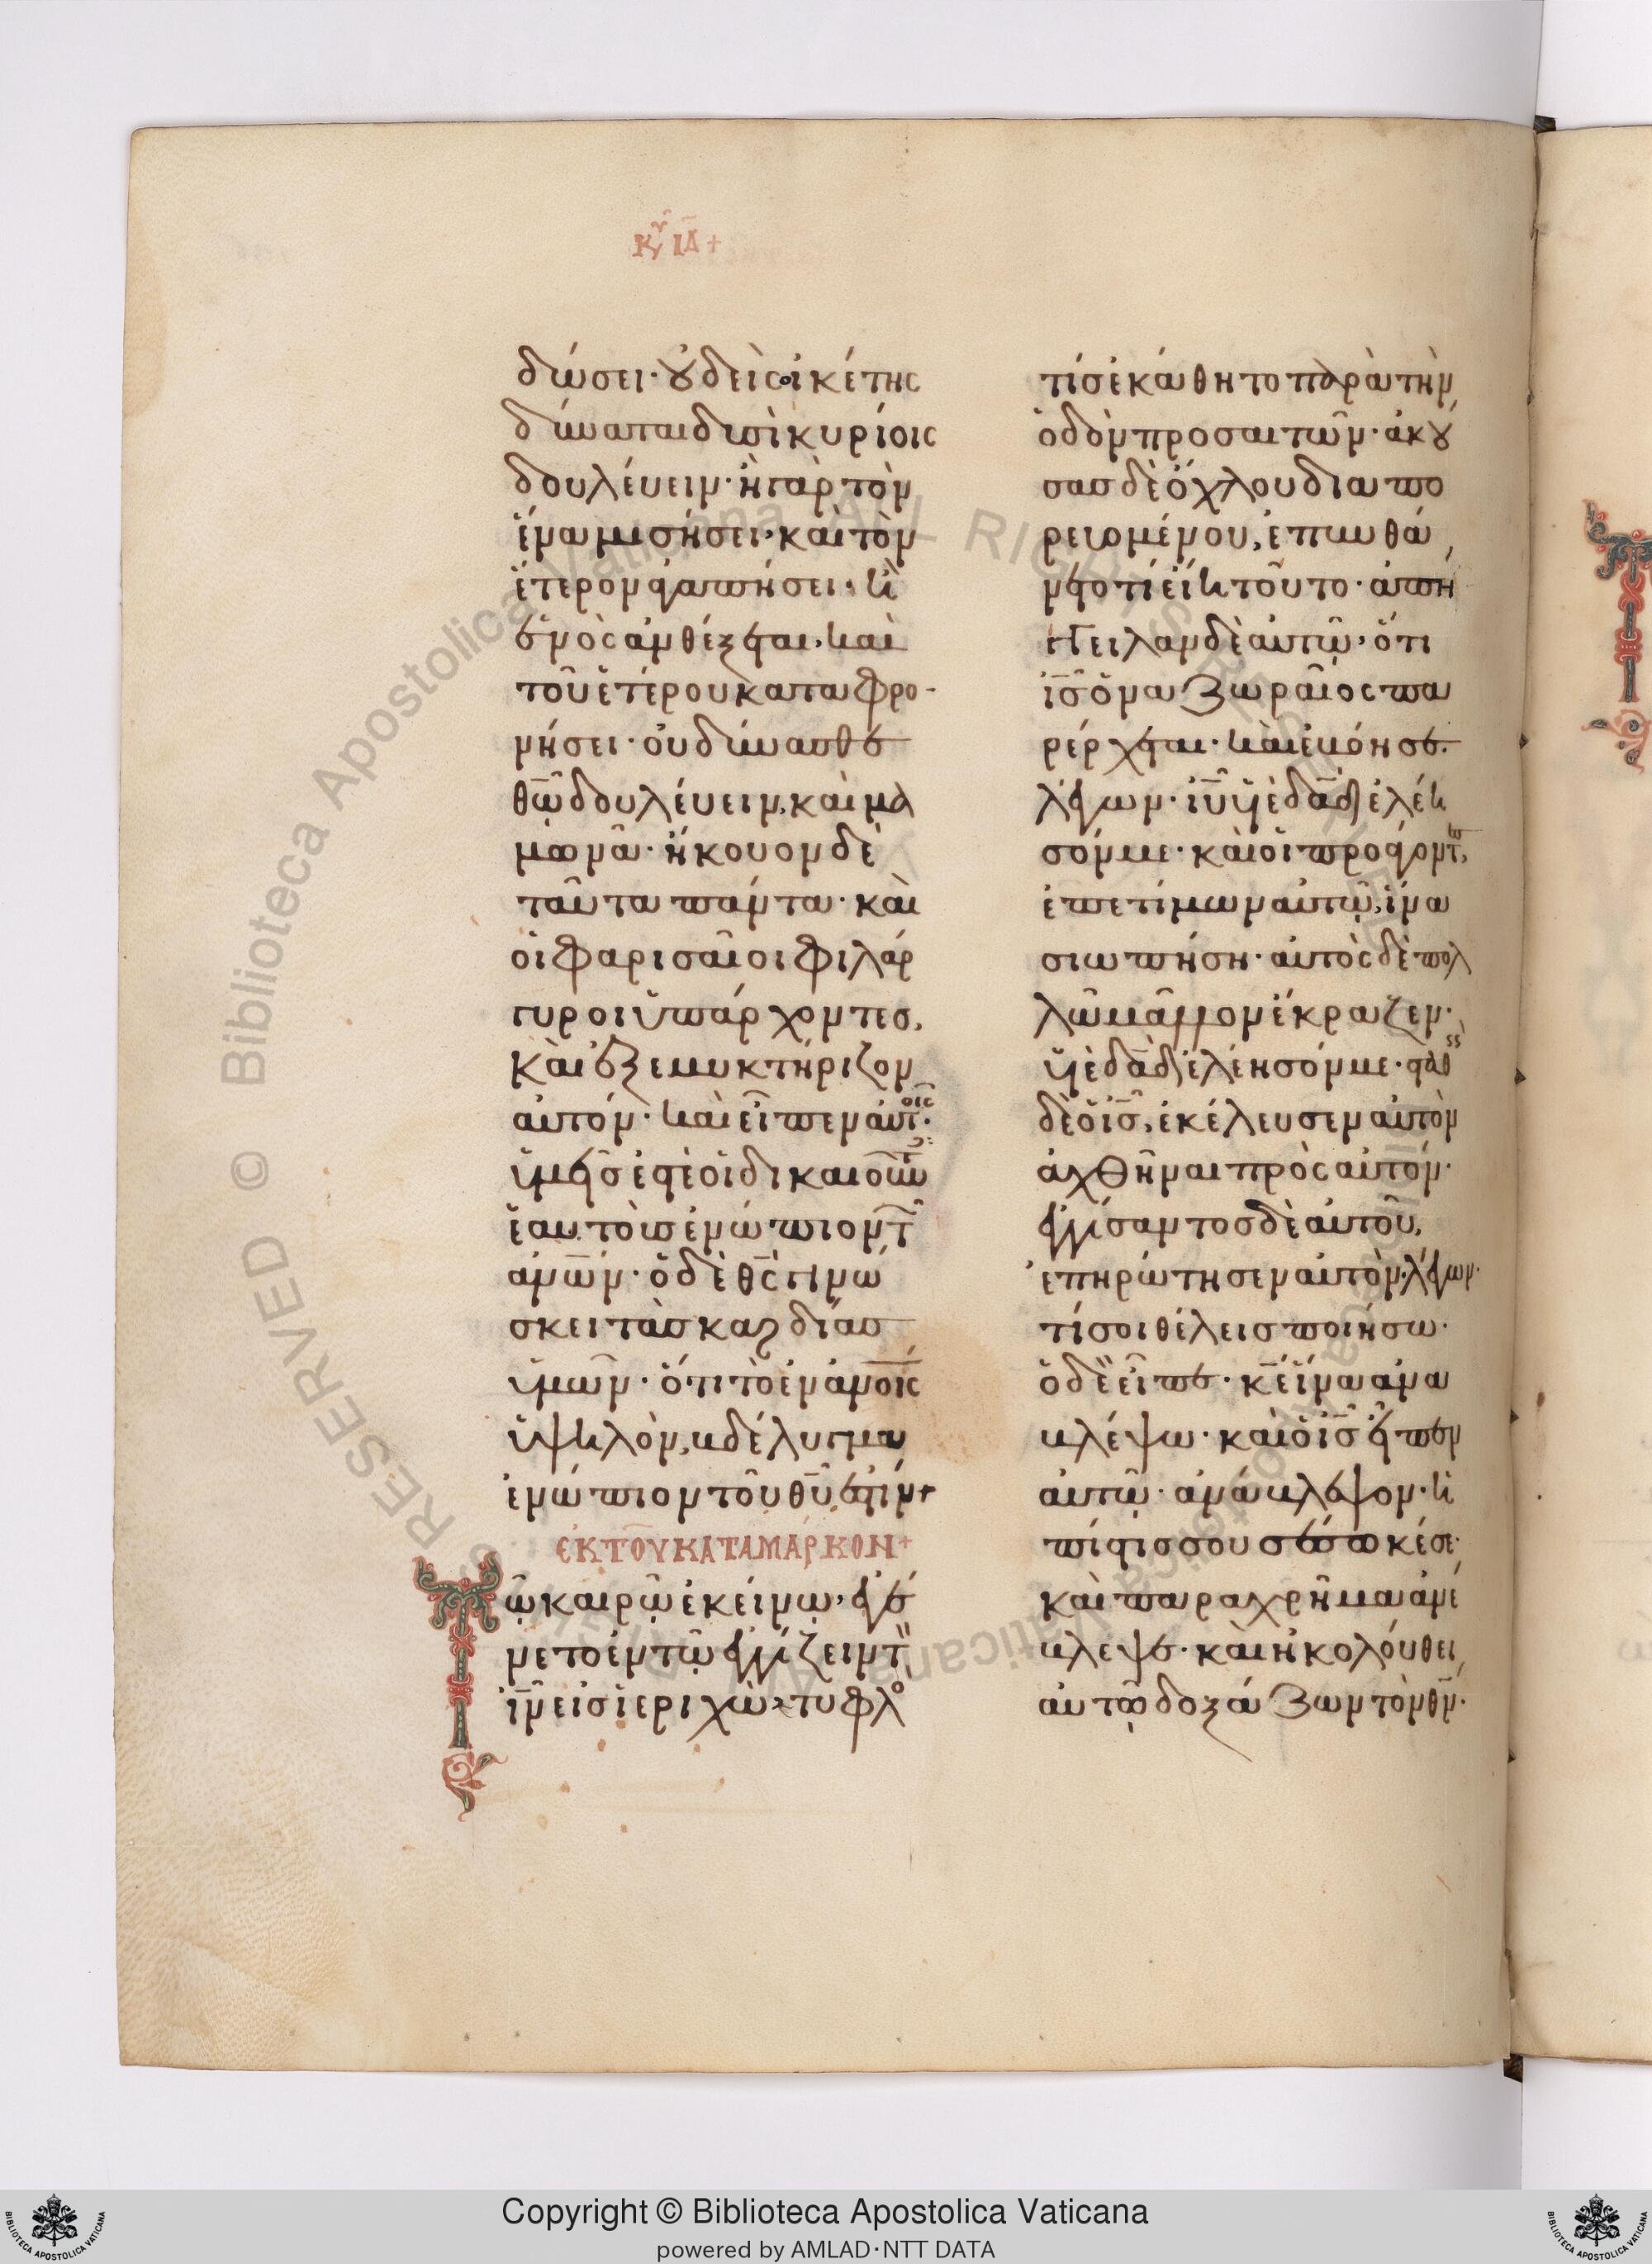 Κυ ΙΔ +
δώσει· οὐδεὶς οἰκέτης
δύναται δυσὶ κυρίοις
δουλεύειν· ἢ γὰρ τὸν
ἕνα μισήσει, καὶ τὸν
ἕτερον ἀγαπήσει· ἢ
ἑνὸς ἀνθέξεται, καὶ
τοῦ ἑτέρου καταφρο-
νήσει· οὐ δύνασθε
θῶ δουλεύειν, καὶ μα
μωνᾶ· ἤκουον δὲ
ταῦτα πάντα· καὶ
οἱ φαρισαῖοι φιλάρ
γυροι ὑπάρχοντες,
καὶ ἐξεμυκτήριζον
αὐτόν· καὶ εἶπεν αὐτοῖς·
ὑμεῖς ἐστὲ οἱ δικαιοῦντ
ἑαυτοὺσ ἐνώπιον τ
ανῶν· ὁ δὲ θς γινώ
σκει τὰσ καρδίασ
ὑμῶν· ὅτι τὸ ἐν ανοις
ὑψηλὸν, βδέλυγμα
ἐνώπιον τοῦ θυ ἐστίν+
ΕΚ ΤΟΥ ΚΑΤΑ ΜΑΡΚΟΝ+
Τῶ καιρῶ ἐκείνω, ἐγέ
νετο ἐν τῶ ἐγγίζειν τ
ιν εἰσ ἱεριχὼ, τυφλο
τίσ ἐκάθητο παρὰ τὴν
ὁδὸν προσαιτῶν· ἀκού
σασ δὲ ὄχλου διαπο
ρευομένου, ἐπυνθά
νετο τί εἴη τοῦτο· ἀπή
γγειλαν δὲ αὐτῶ, ὅτι
ισ ὁ ναζωραῖος πα
ρέρχεται· καὶ ἐβόησε
λέγων· ιυ υἱὲ δαδ ἐλέη
σόν με· καὶ οἱ προάγοντες,
ἐπετίμων αὐτῶ, ἵνα
σιωπήση· αὐτὸς δὲ πολ
λῶ μᾶλλον ἔκραζεν·
υἱὲ δαδ ἐλέησόν με· σταθεὶς
δὲ ὁ ισ, ἐκέλευσεν αὐτὸν
ἀχθῆναι πρὸς αὐτόν·
ἐγγίσαντοσ δὲ αὐτοῦ,
ἐπηρώτησεν αὐτὸν, λέγων·
τί σοι θέλεισ ποιήσω·
ὁ δὲ εἶπε· κε ἵνα ἀνα
βλέψω· καὶ ὁ ισ εἶπεν
αὐτῶ· ἀνάβλεψον· ἡ
πίστισ σου σέσωκέ σε·
καὶ παραχρῆμα ἀνέ
βλεψε· καὶ ἠκολούθει
αὐτῶ δοξάζων τὸν θν·
Copyright © Biblioteca Apostolica Vaticana
powered by AMLAD·NTT DATA